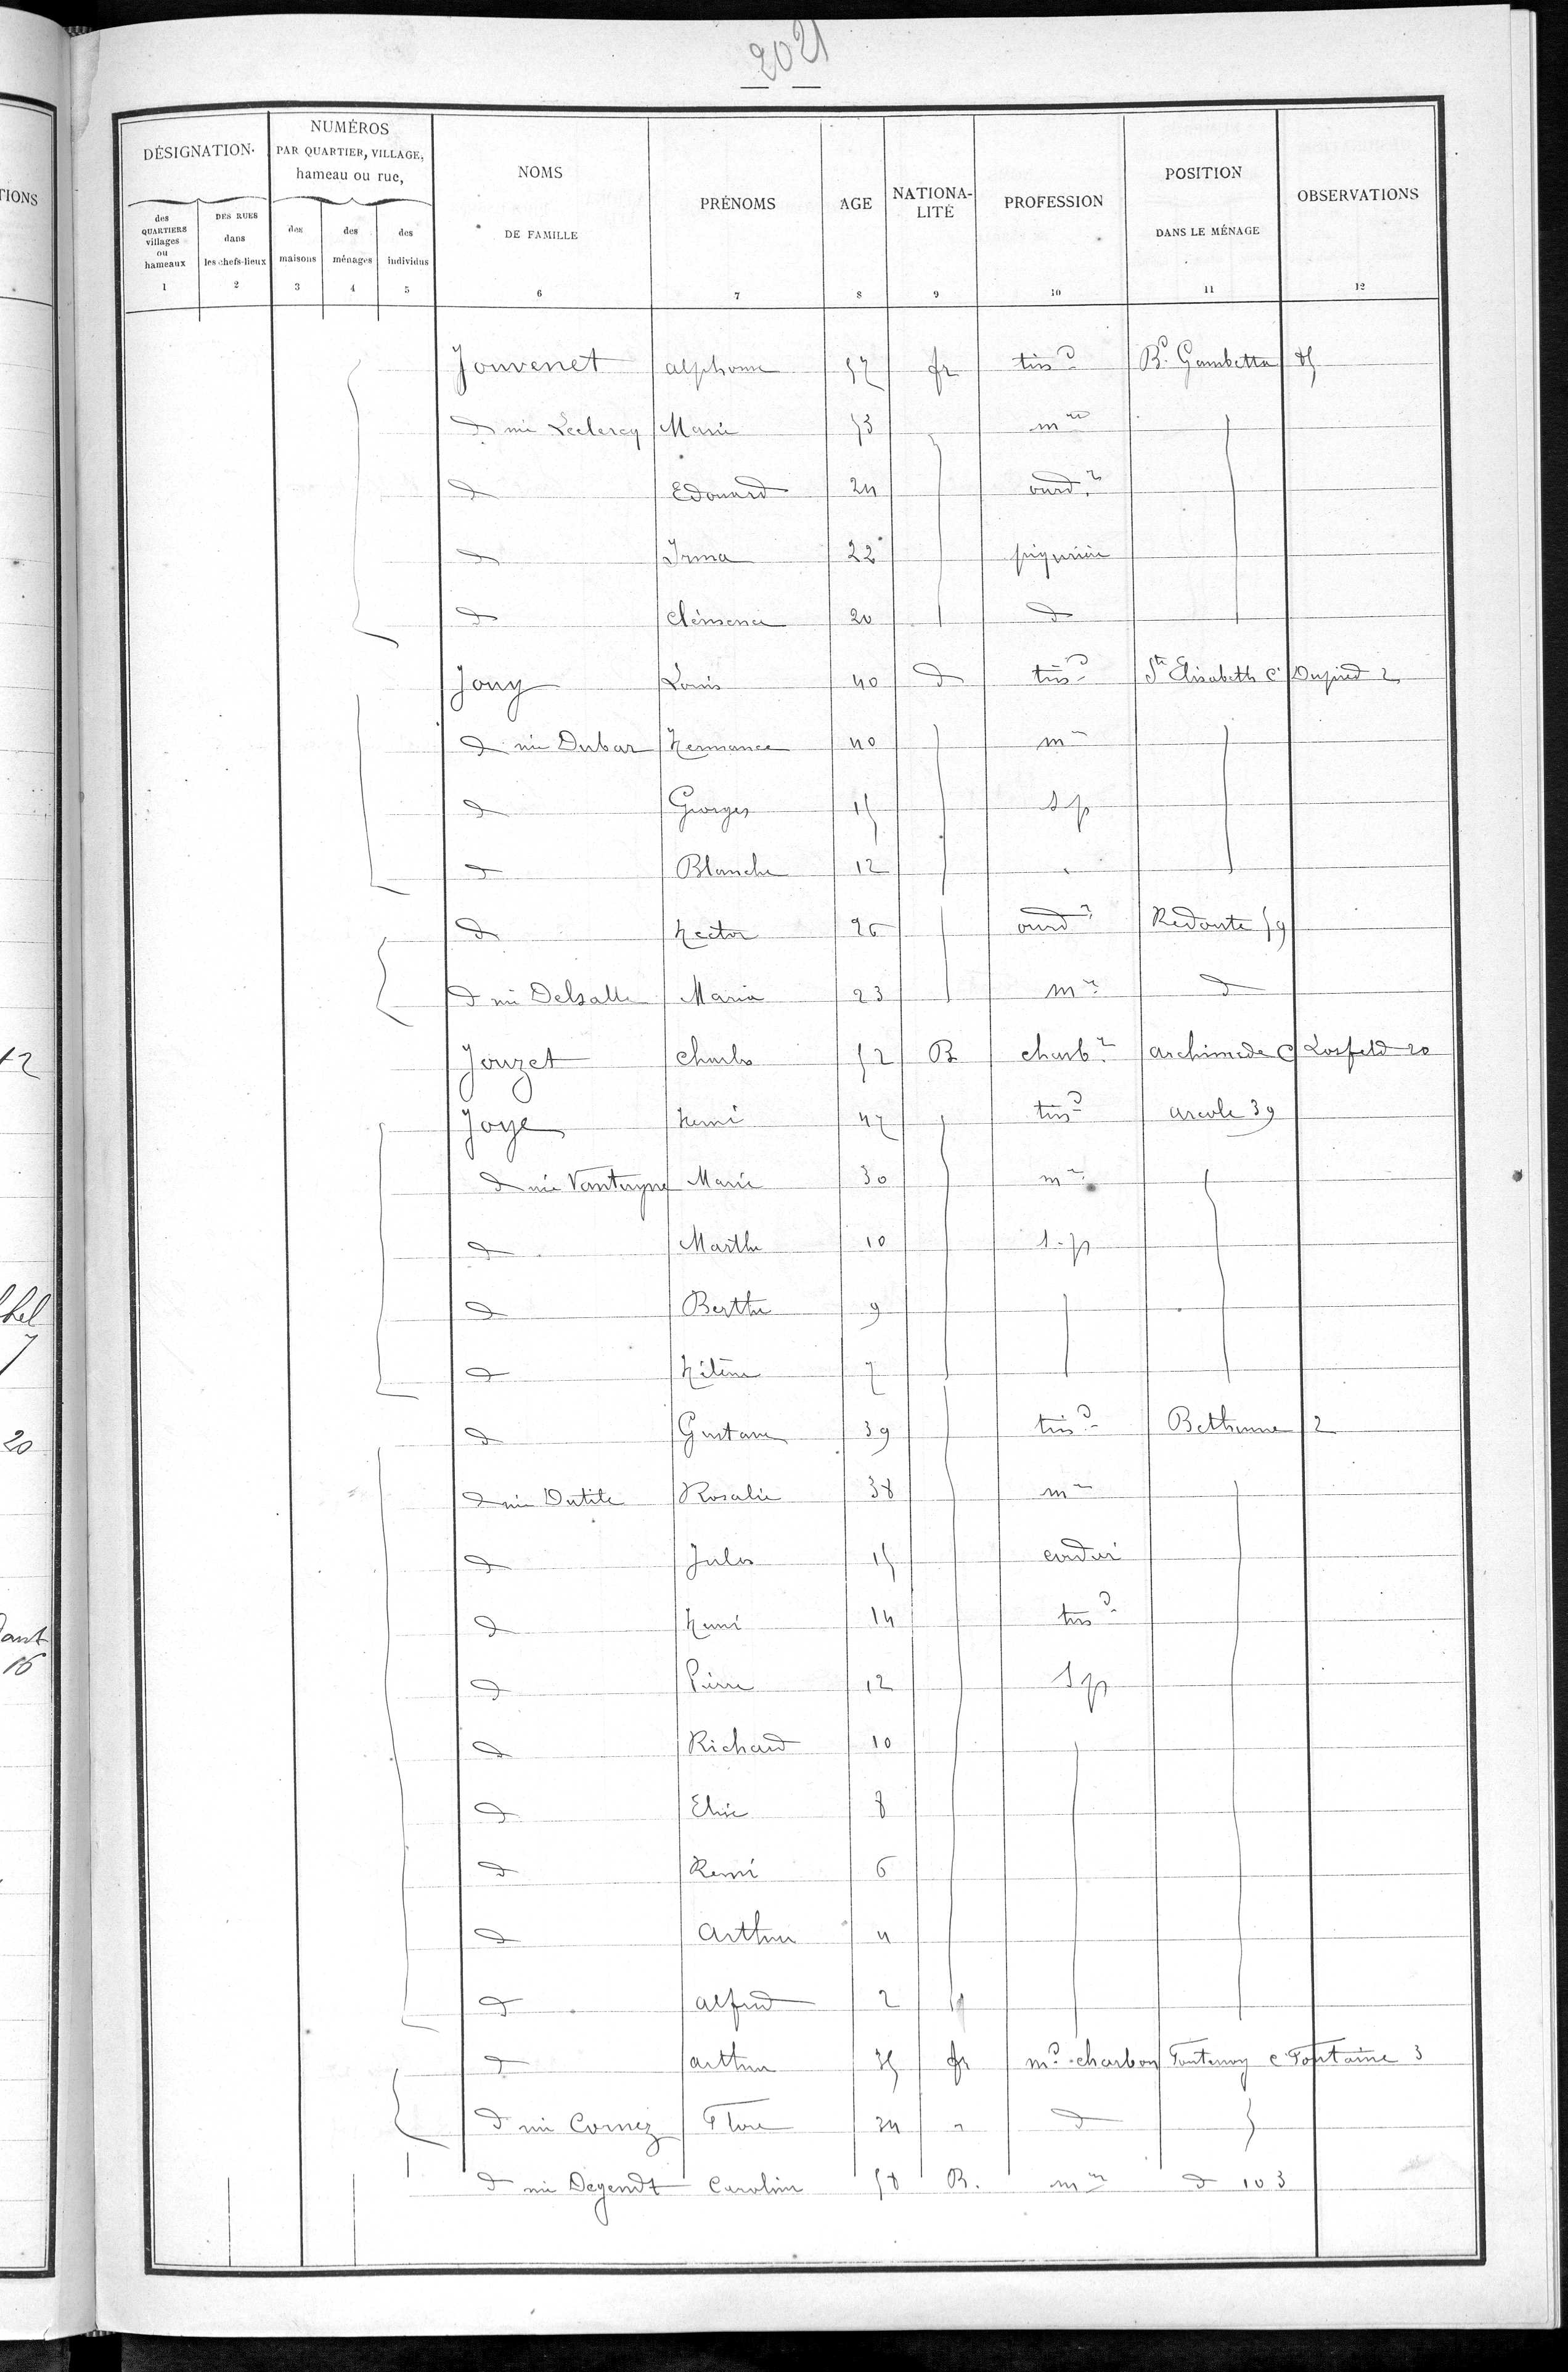 2021
DÉSIGNATION.
NUMÉROS
PAR QUARTIER, VILLAGE,
hameau ou rue,
NOMS
DE FAMILLE
PRÉNOMS
AGE
NATIONA-
LITÉ
PROFESSION
POSITION
DANS LE MÉNAGE
OBSERVATIONS
des
QUARTIERS
villages
ou
hameaux
DES RUES
dans
les chefs-lieux
des
maisons
des
ménages
des
individus
1 2 3 4 5 6 7 8 9 10 11 12
Jouvenet alphonse 57 fr tisd Bd Gambetta
d née Leclercq Marie 53 mre
d Edouard 24 ourdr
d Irma 22 piqurière
d Clémence 20 d
Jouy Louis 40 d tisd Ste Elisabeth c. Dupied 2
d née Dubar Hermance 40 mre
d Georges 15 s p
d Blanche 12
d Hector 26 ourdr Redoute 59
d née Delsalle Maria 23 mre d
Jouzet Charles 52 B charbr archimede C Losfeld 20
Joye Henri 47 tisd arcole 39
d née Vantuyne Marie 30 mre
d Marthe 10 s. p
d Berthe 9
d Hélène 7
d Gustave 39 tisd Bethune 2
d née Dutile Rosalie 38 mre
d Jules 15
d Henri 14 tisd
d Pierre 12 s p
d Richard 10
d Elise 8
d Remi 6
d Arthur 4
d alfred 2
d arthur 35 fr md charbon Fontenoy c. Fontaine 3
d née Cornez Flore 34 " d
d née Degendt Caroline 58 B. mre d 103